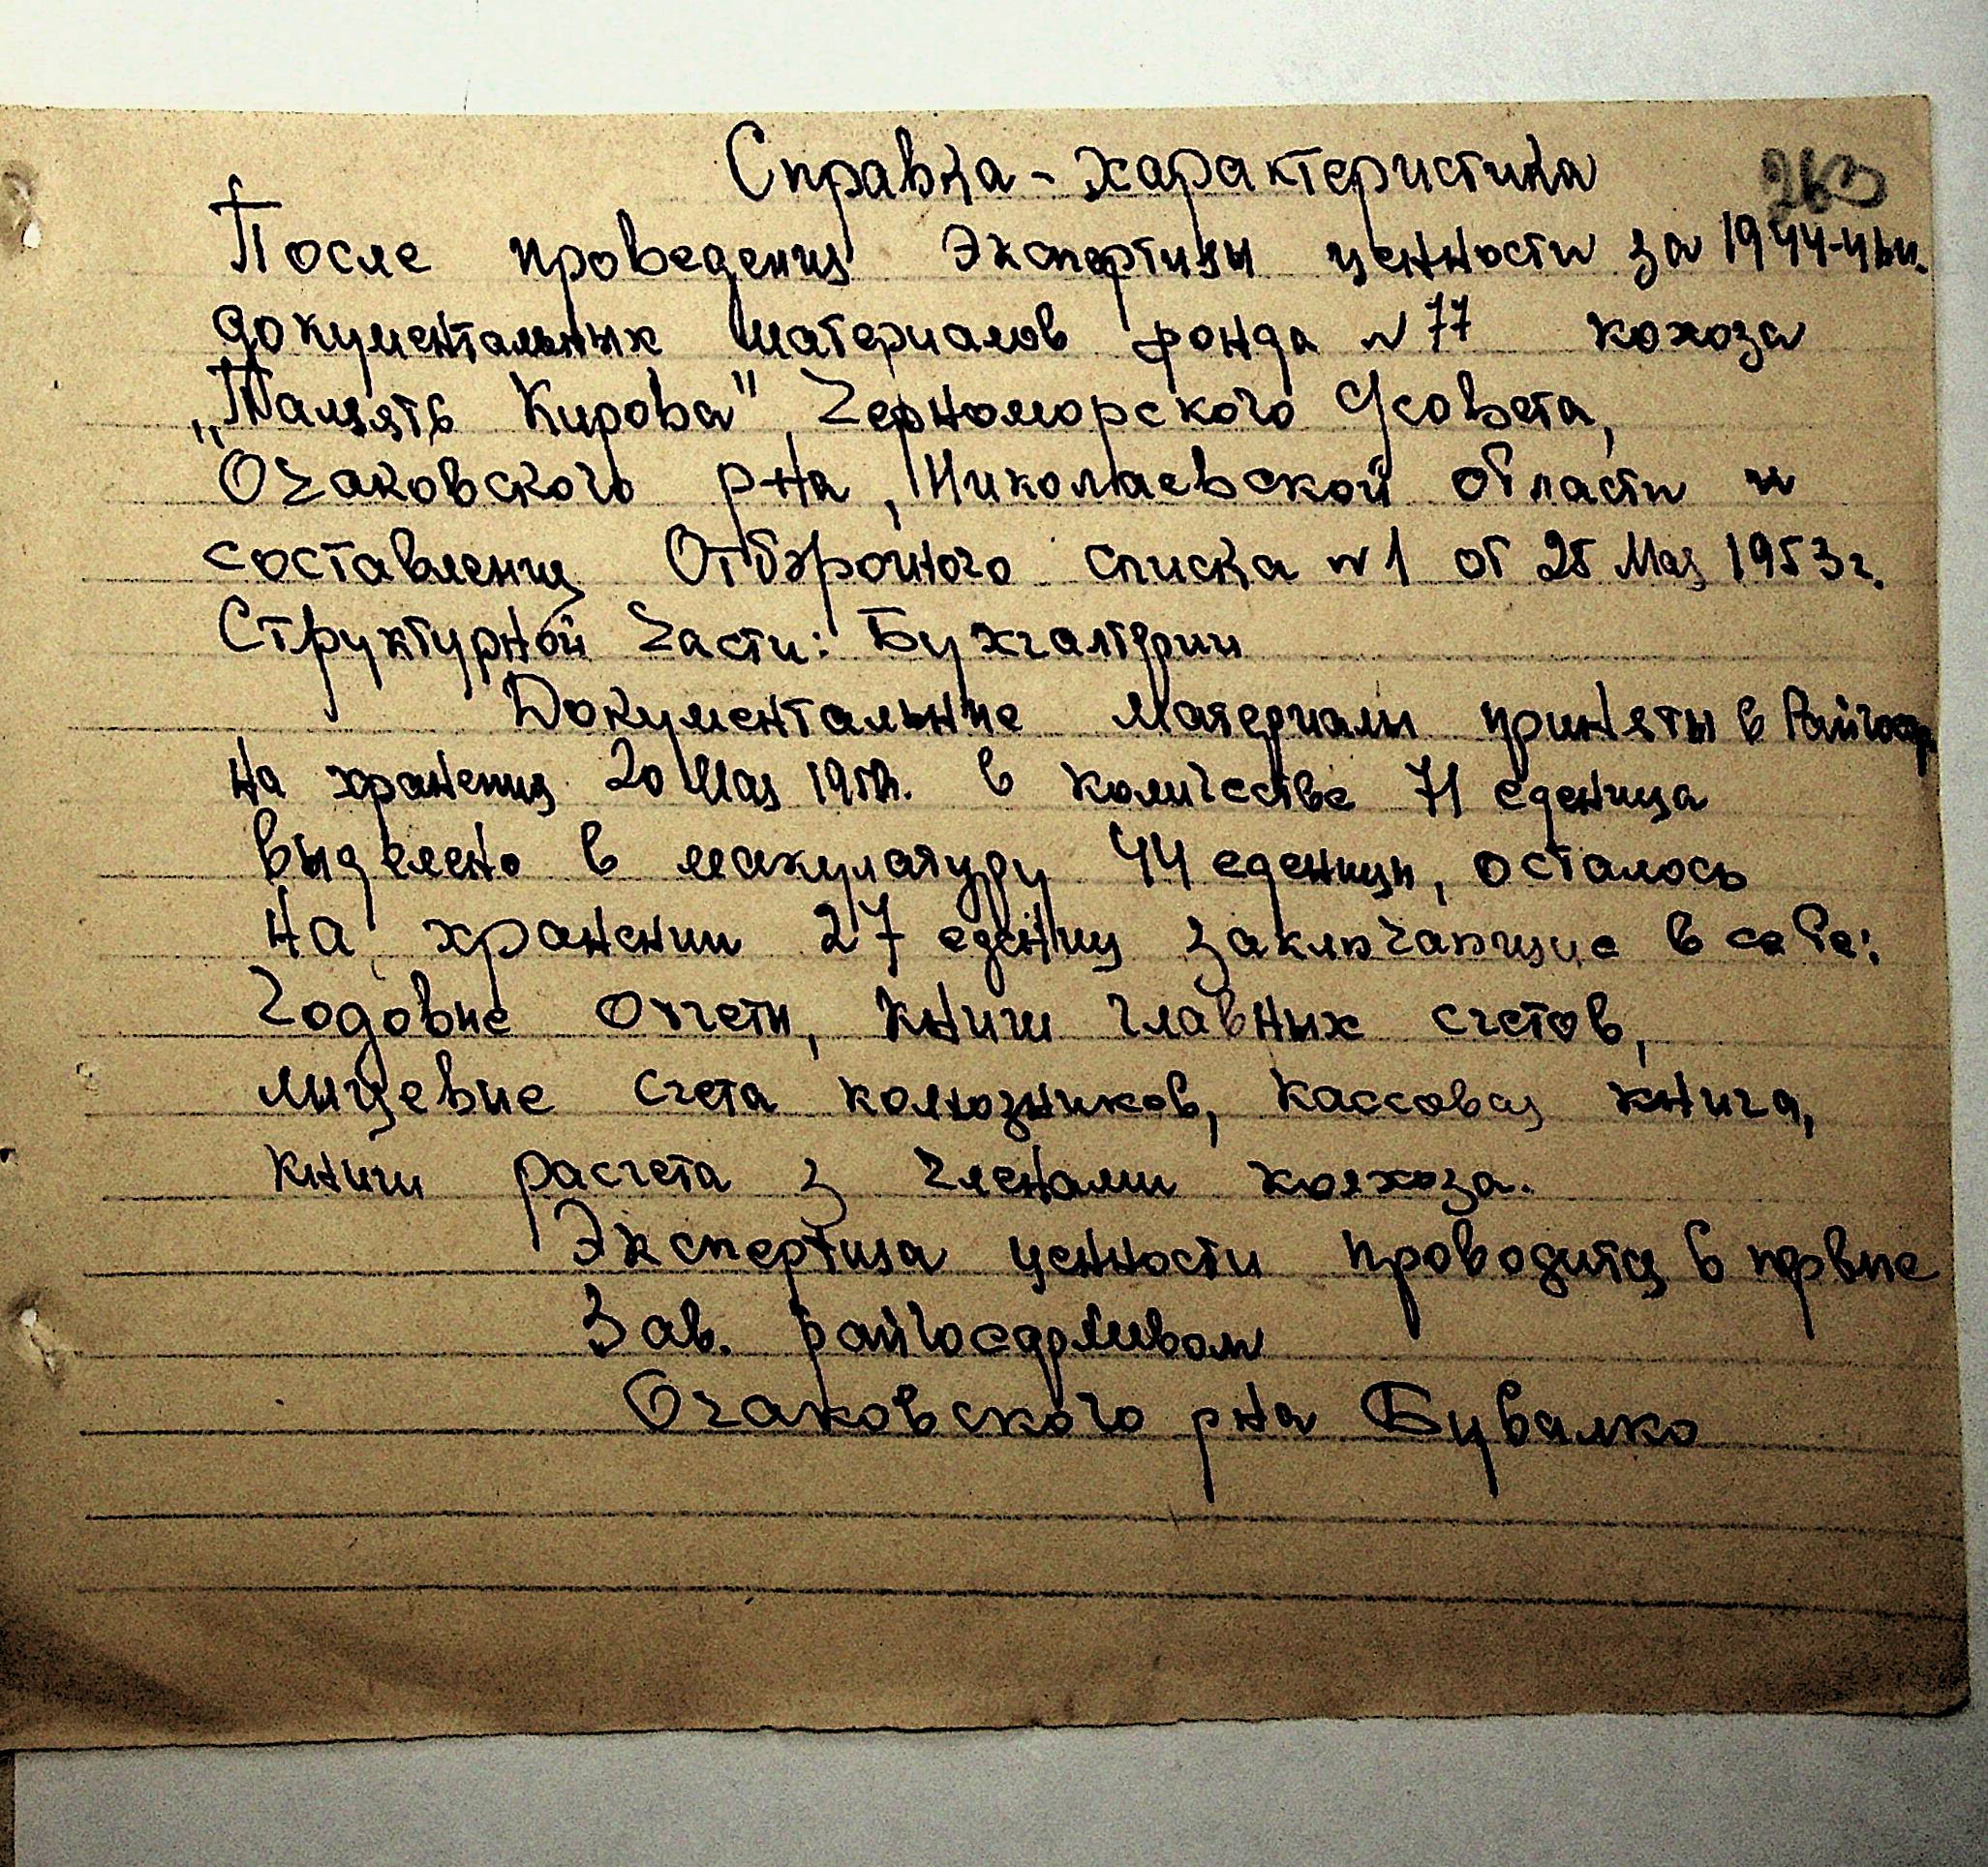 Справка - характеристика
263
После проведения Экспертизы ценности за 1944-
документальных материалов фонда № 77 кохоза
„Память Кирова" Черноморского с/совета,
Очаковского р-на, Николаевской области и
составления Отборочного списка № 1 от 25 Мая 1953 г.
Структурной части: Бухгалтерии
Документальние материалы приняты в Райгосар
на хранения 20 Мая в количестве 71 еденица
выделено в макулатуру 44 еденици, осталось
на хранении 27 едениц заключающие в себе:
Годовие отчети, книги главных счетов,
лицевие счета колхозников, кассовая книга,
книги расчета з членами колхоза.
Экспертиза ценности проводится в первие
Зав. райгосархивом
Очаковского р-на Бувалко